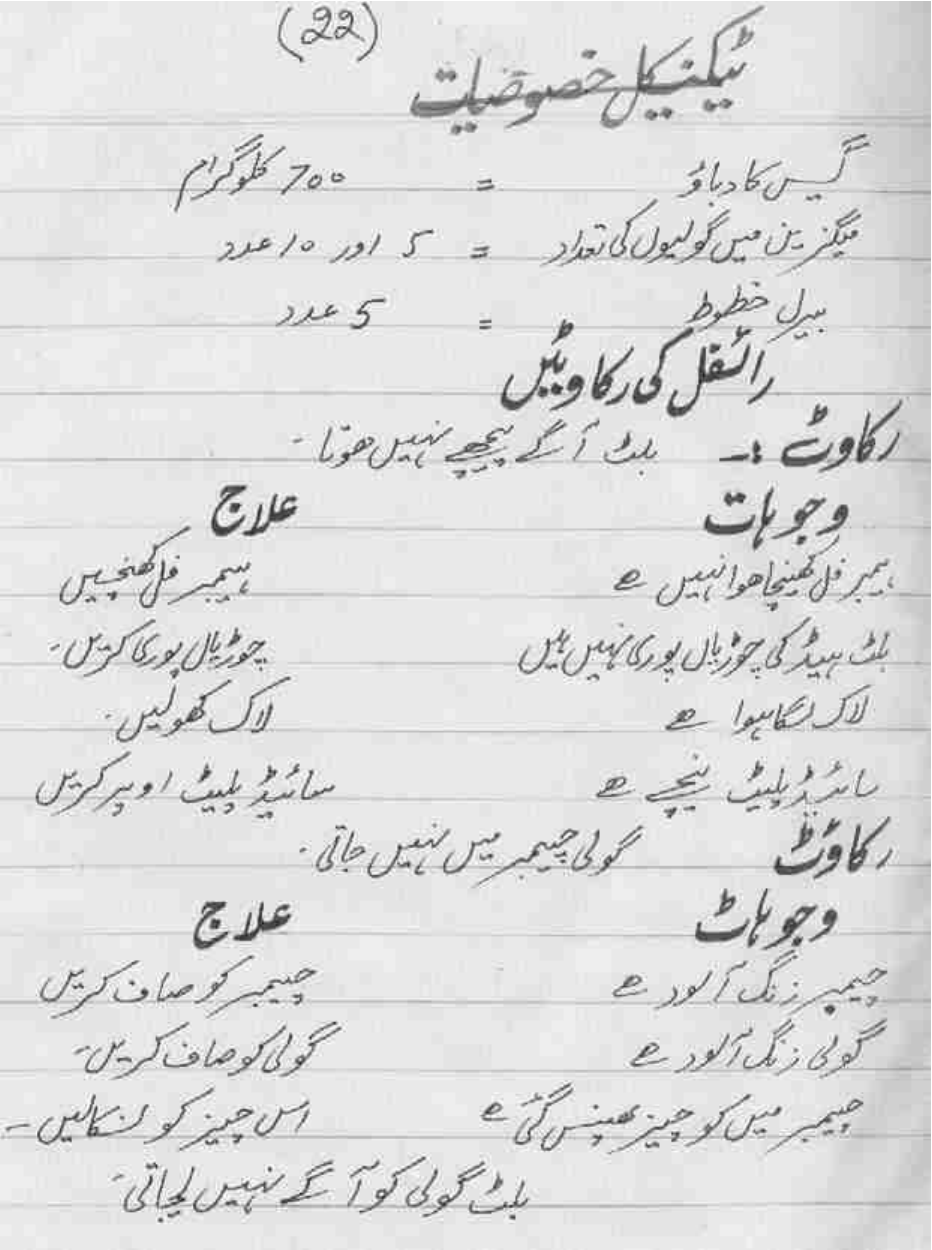 (22)
ٹیکنیکل خصوصیات
گیس کا دباؤ = 700 کلوگرام
میگزین میں گولیوں کی تعداد = 5 اور 10 عدد
بیرل خطوط = 5 عدد
رائفل کی رکاوٹیں
رکاوٹ :۔ بلٹ آگے پیچھے نہیں ھوتا ۔
وجوہات علاج
ہیمبر فل کھینچا ھوا نہیں ھے ہیمبر فل کھنچیں
بلٹ ہیڈ کی چوڑیاں پوری نہیں ہیں چوڑیاں پوری کریں ۔
لاک لگا ہوا ھے لاک کھولیں ۔
سائیڈ پلیٹ نیچے ھے سائیڈ پلیٹ اوپر کریں
رکاوٹ گولی چیمبر میں نہیں جاتی ۔
وجوہاٹ علاج
چیمبر زنگ آلود ھے چیمبر کو صاف کریں
گولی زنگ آلود ھے گولی کو صاف کریں ۔
چیمبر میں کو چیز پھنس گئی ھے اس چیز کو نکالیں ۔
بلٹ گولی کو آگے نہیں لیجاتی ۔